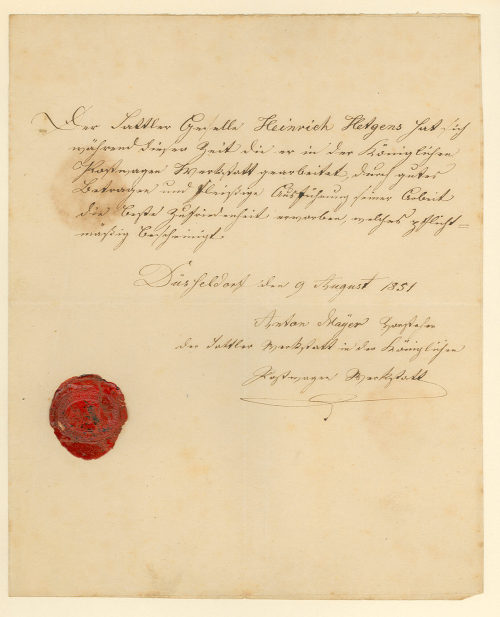 Der Sattler Geselle Heinrich Hetgens hat sich
während dieser Zeit die er in der Königlichen
Postwagen Werkstatt gearbeitet, durch gutes
Betragen und fleißige Ausführung seiner Arbeit
die beste Zufriedenheit erworben, welches pflicht=
mäßig bescheinigt.
Düsseldorf den 9 August 1851
Anton Mayer Vorsteher
der Sattler Werkstatt in der Königlichen
Postwagen Werkstatt